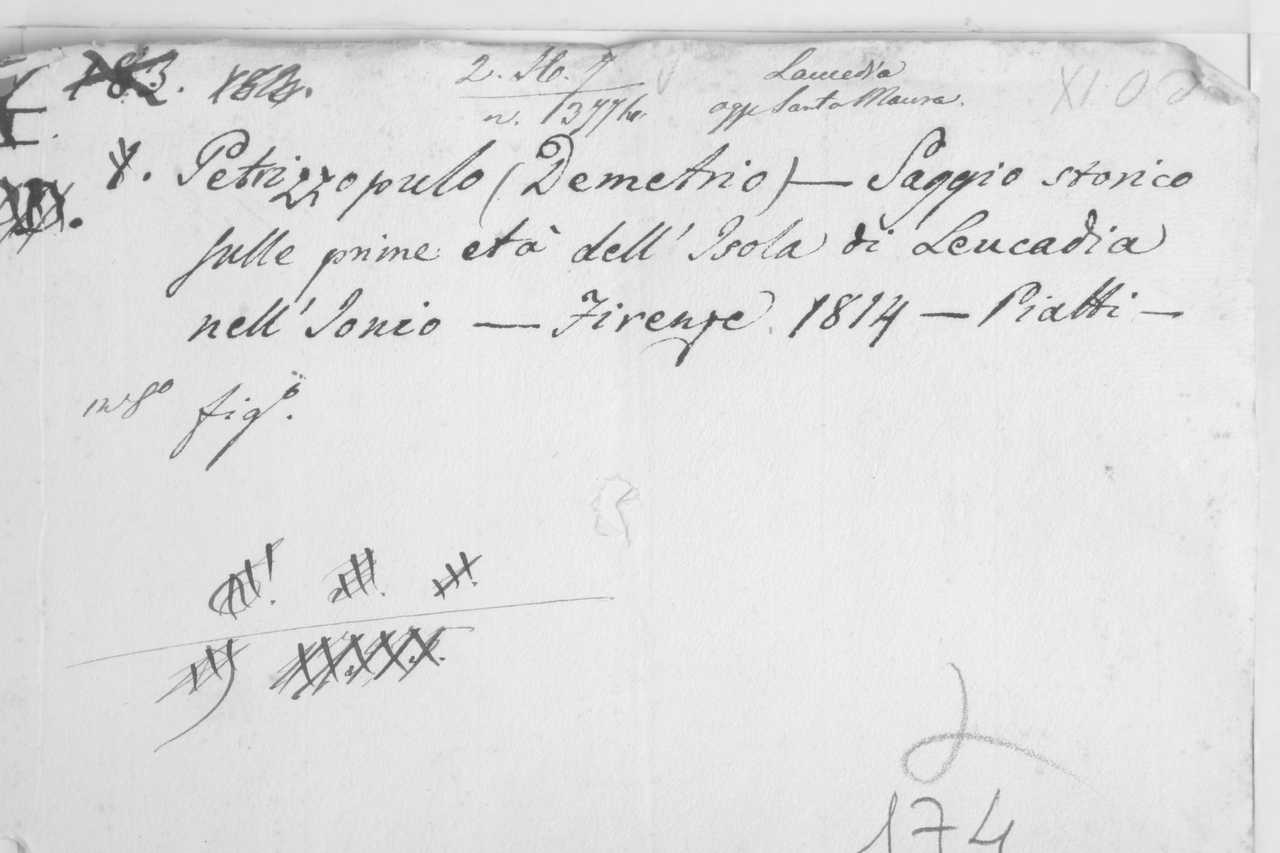 Laucadia
oggi Santa Maura.
Petrizzopulo (Demetrio) — Saggio storico
sulle prime età dell' Isola di Leucadia
nell' Jonio — Firenze 1814 — Piatti —
in 8º figº.
174